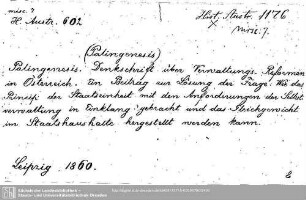 misc. 7
H. Austr. 602
Hist. Austr. 1176
misc. 7.
(Palingenesis)
Palingenesis. Denkschrift über Verwaltungs-Reformen
in Österreich. Ein Beitrag zur Lösung der Frage: Wie das
Prinzip der Staatseinheit mit den Anforderungen der Selbst-
verwaltung in Einklang gebracht und das Gleichgewicht
im Staatshaushalte hergestellt werden kann.
Leipzig 1860.